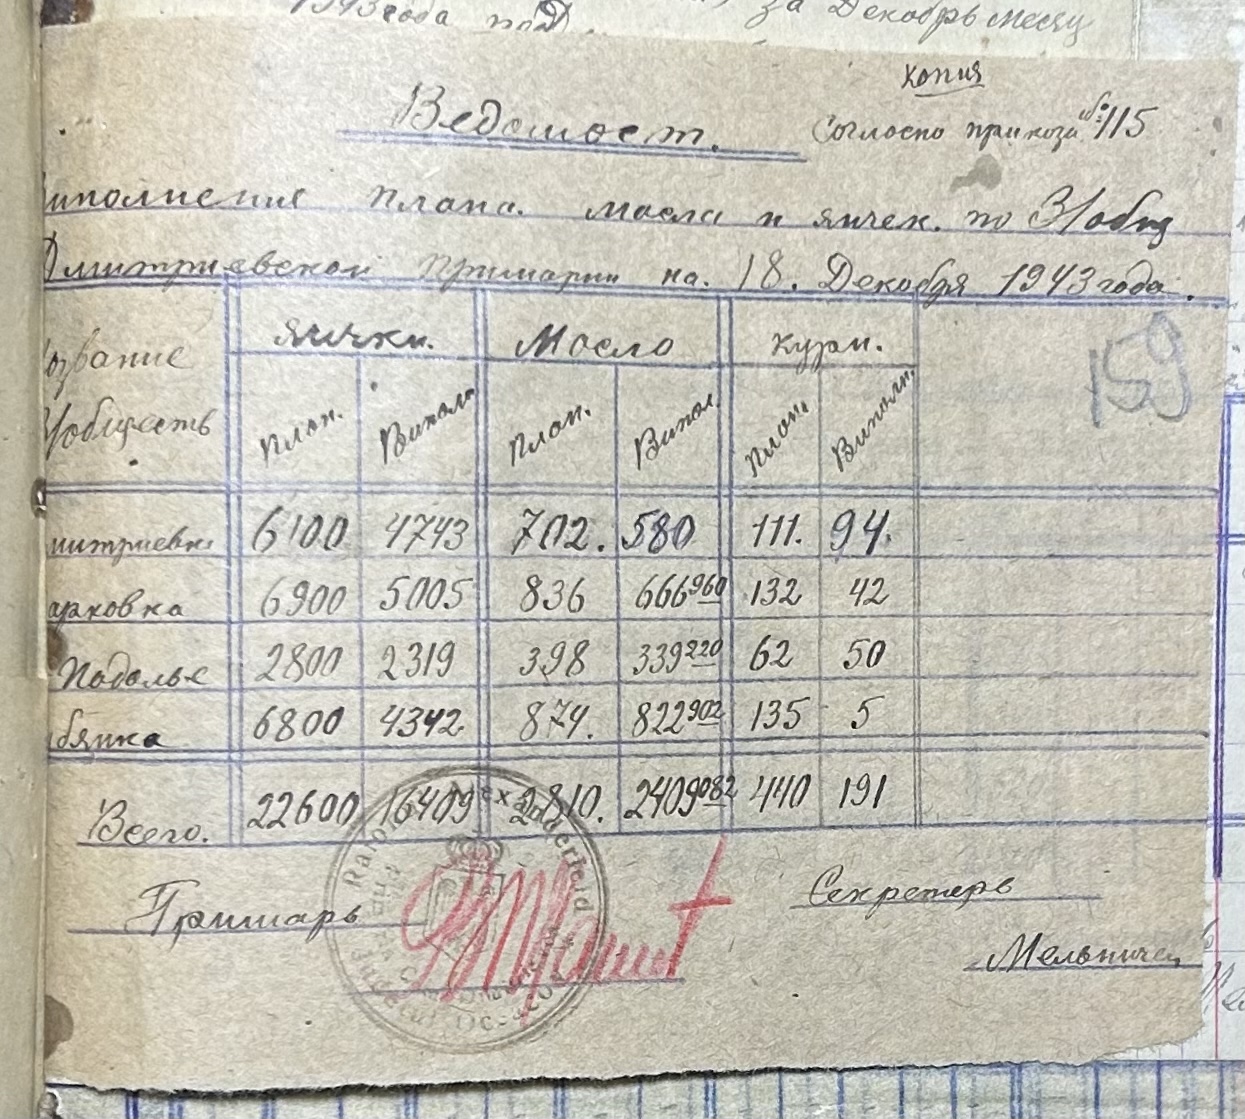 1943 года по
за Декабрь месяц
копия
Ведомост.
Согласно приказа № 115
иполнения плана. масла и яичек. по З/общ
Дмитриевской примарии на. 18. Декабря 1943 года.
азвание З/обществ
яички. Масло куры.
159
План. Выполн План. Выпол. План. Выполн.
митриевка 6100 4743 702. 580 111. 94.
арковка 6900 5005 836 666 960 132 42
Подолье 2800 2319 398 339 220 62 50
бянка 6800 4342 874. 822 902 135 5
Всего. 22600 16409 2810. 2409 082 440 191
Примарь
Секретарь
Мельничен